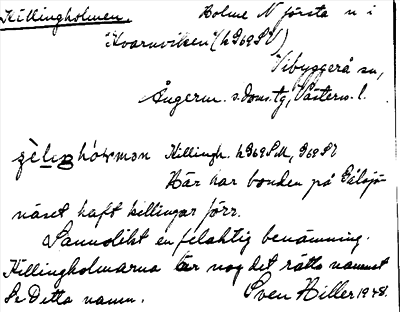 Killingholmen. Holme N första n i
Kvarnviken (h 969 SV)
Vibyggerå sn,
Ångerm. s. doms. tg, Västern. l.
gèleŋhóɫmən Killingh. h 969 SM, 969 SV
Här har bonden på Gälsjö-
näset haft killingar förr.
Sannolikt en felaktig benämning.
Killingholmarna är nog det rätta namnet
Se Detta namn. Sven Hiller 1948.